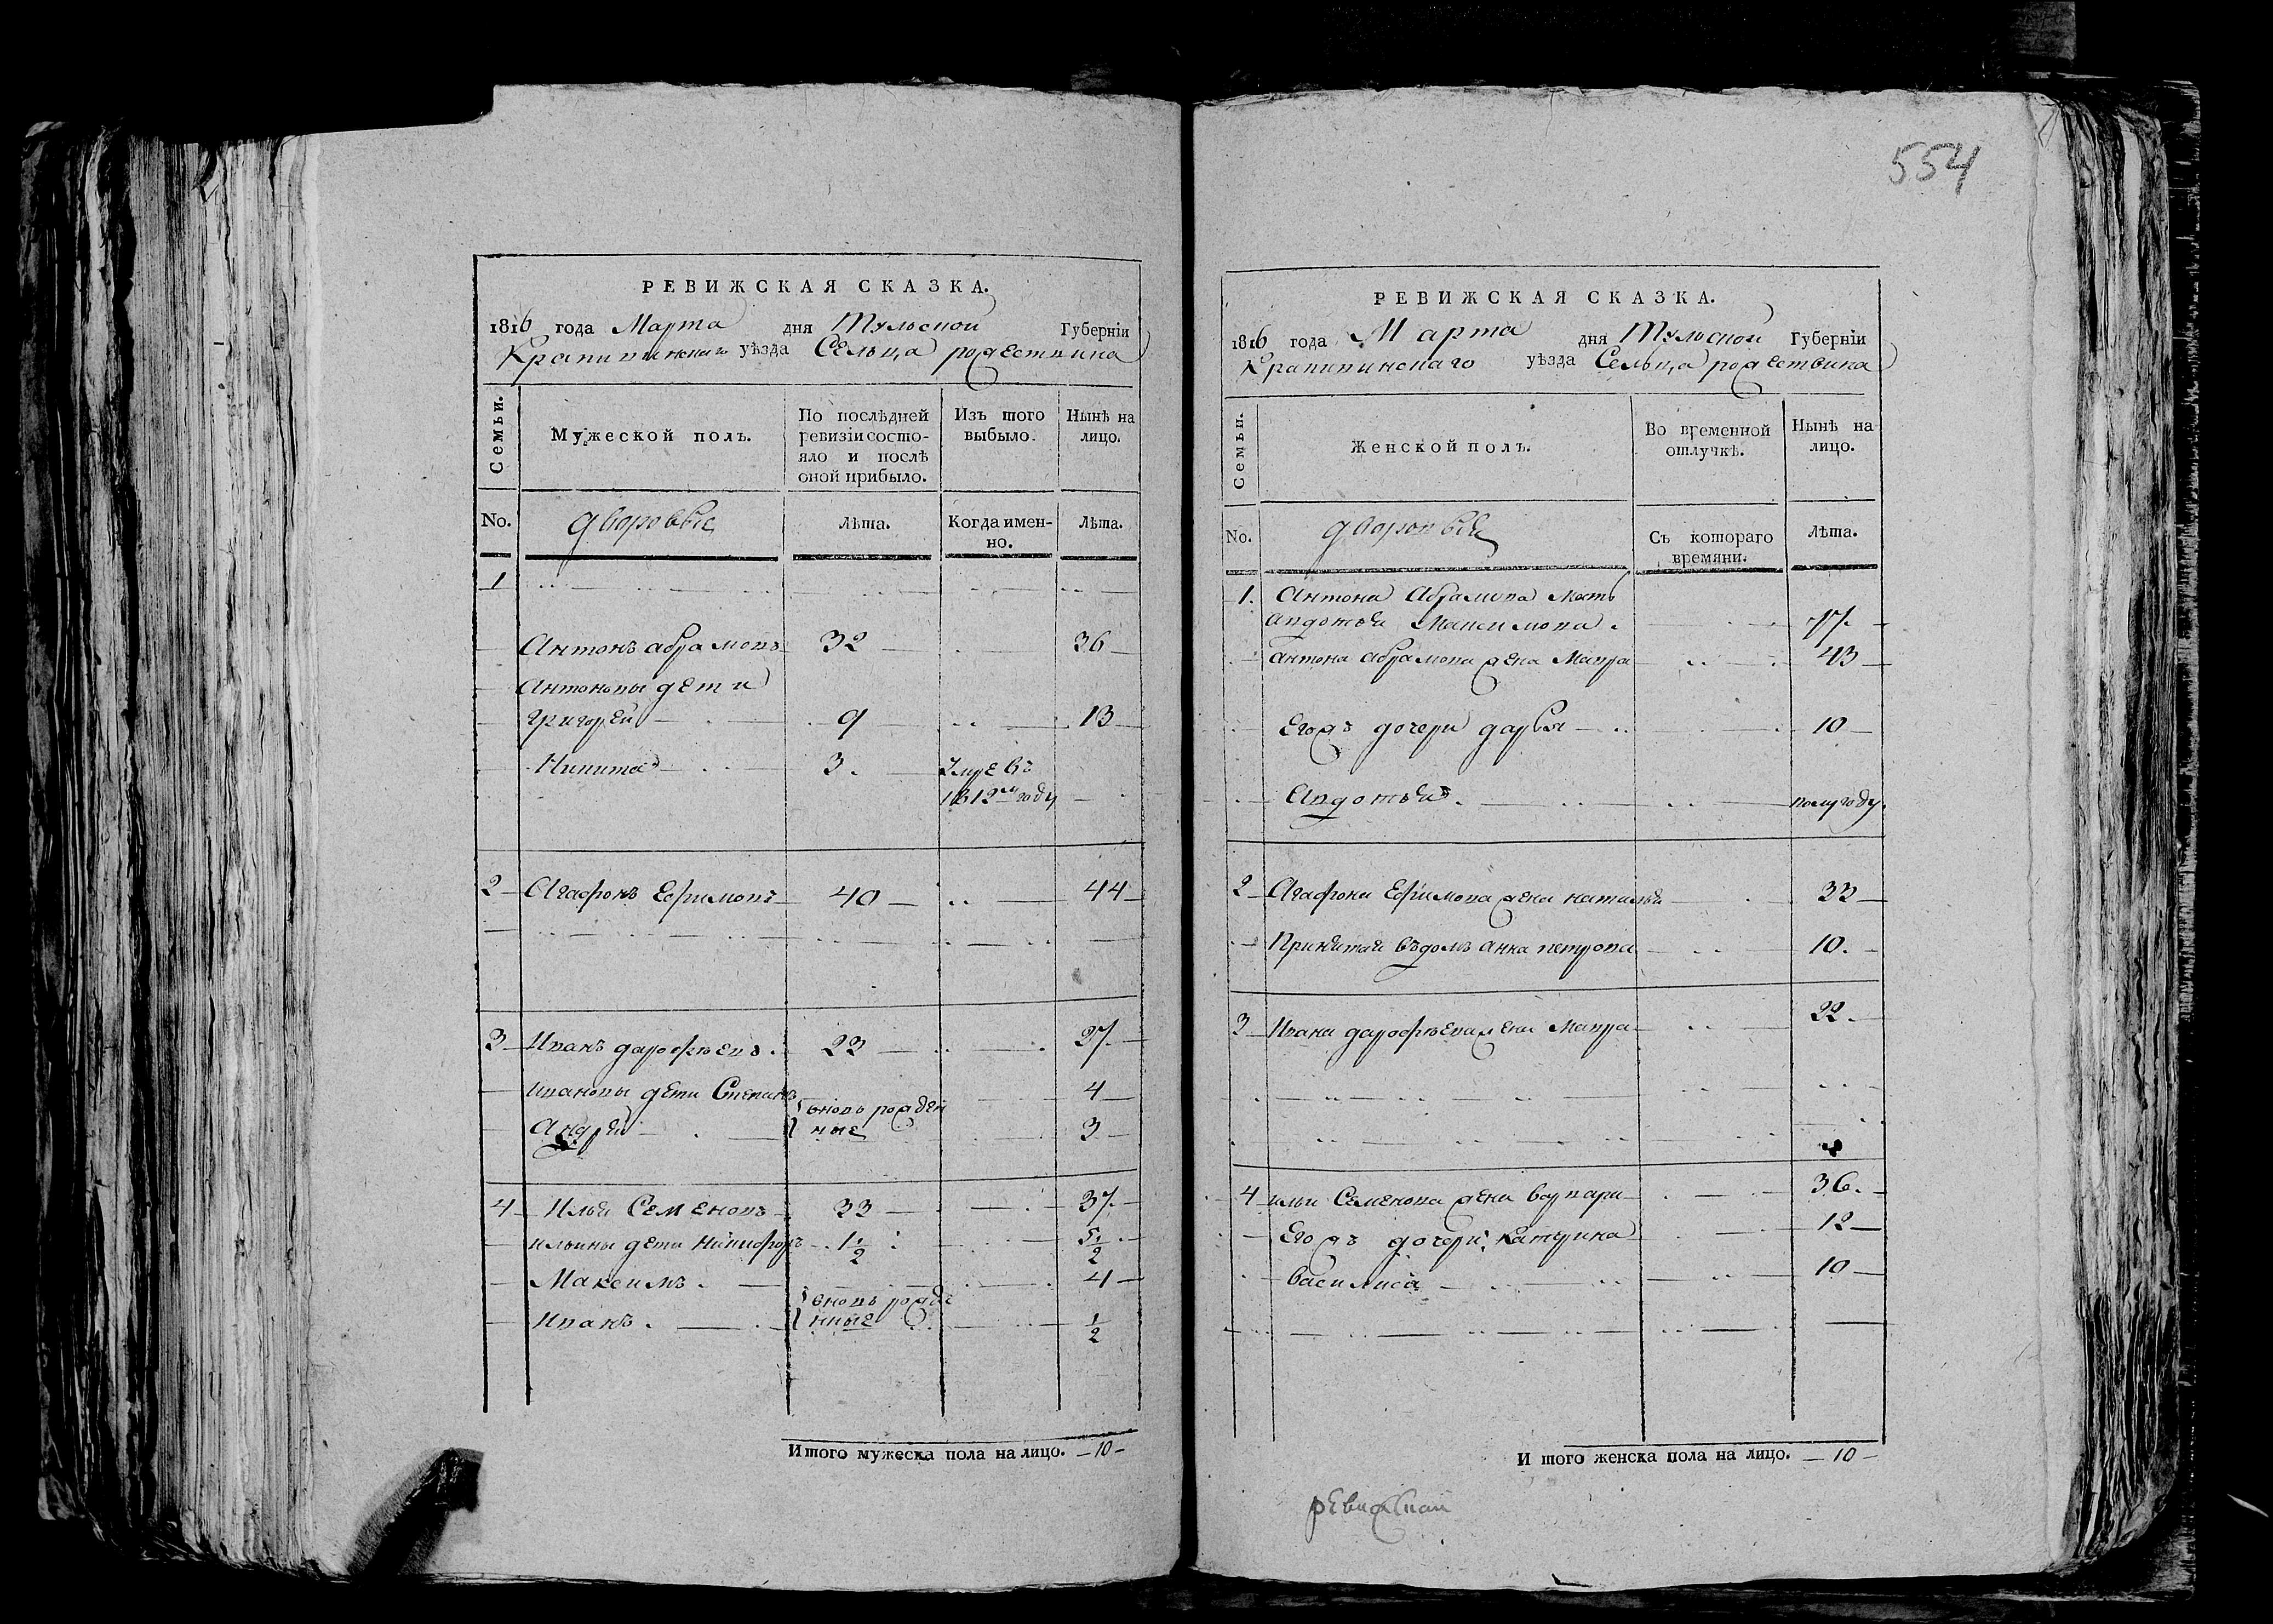 554
РЕВИЖСКАЯ СКАЗКА.
1816 года Марта дня Тульской Губерніи
Крапивинскаго уѣзда Сельца рожествина
Семьи.
Мужеской полъ.
По послѣдней ревизіи состо-
яло и послѣ
оной прибыло.
Изъ того
выбыло.
Нынѣ на
лицо.
No.
дворовые
лѣта.
Когда имен-
но.
лѣта.
1
Антонъ абрамовъ 32 36
Антоновы дети
григорей 9 13
Никита 3. Умре въ
1812м году
2 Агафонъ Ефимовъ 40 44
3 Иванъ дарофѣевъ. 23 27.
ивановы дети Степанъ вновь рожден 4
Андрей ные 3
4 Илья Семеновъ 33 37.
ильины дети Никифоръ 1 1/2 5 1/2
Максимъ. 4
вновь рожде
Иванъ. нные 1/2
Итого мужеска пола на лицо. 10
РЕВИЖСКАЯ СКАЗКА.
1816 года Марта дня Тульской Губерніи
Крапивинскаго уѣзда Сельца рожествина
Семьи.
Женской полъ.
Во временной
отлучкѣ.
Нынѣ на
лицо.
No.
дворовые
Съ котораго
времяни.
лѣта.
1. Антона Абрамова мать
авдотья Максимова.
антона абрамова жена Мавра 43
Егожъ дочери дарья 10
Авдотья. полугоду.
2 Агафона Ефимова жена наталья 33
Принятая въдомъ анна петрова 10.
3 Ивана дарофѣева жена Мавра 22.
4 ильи Семенова жена варвара 36.
Егожъ дочери катерина 12
василиса 10
И того женска пола на лицо. 10
ревижскай